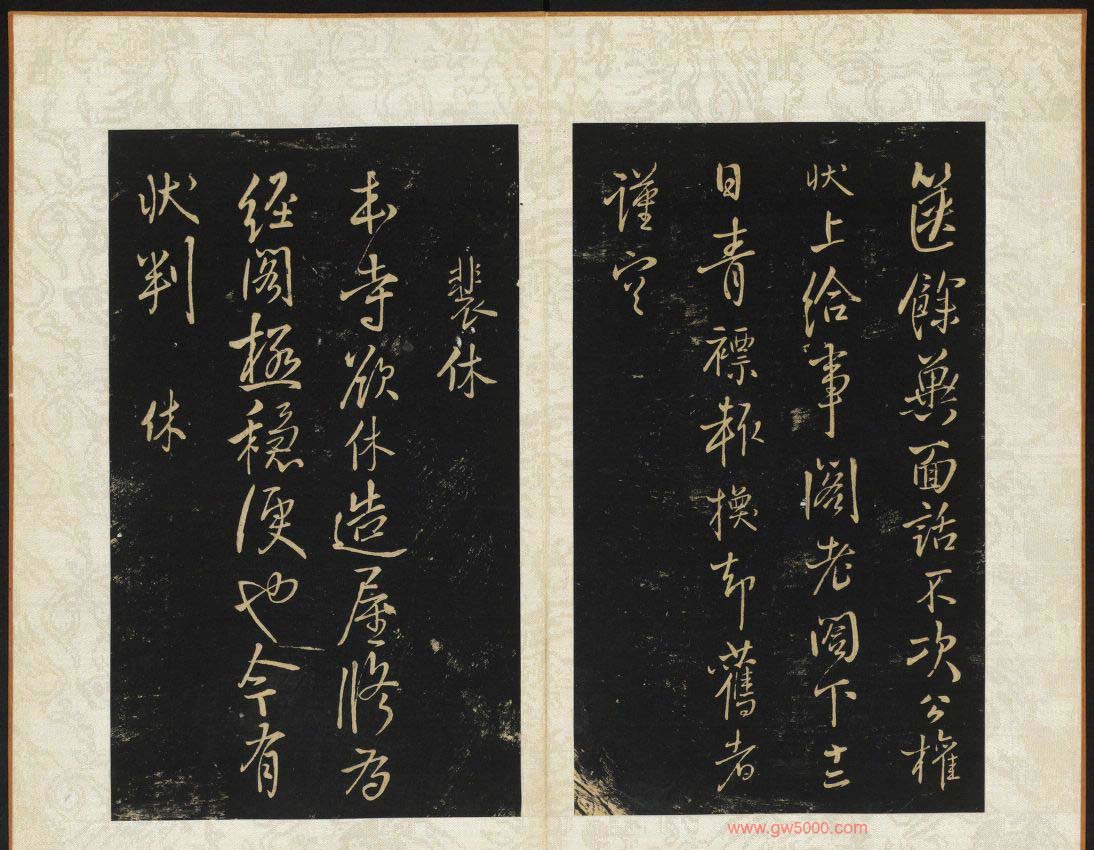 篋餘冀面話不次公權
狀上給事閣老閤下十二
日青褾軸換却舊者
謹空
裴休
本寺欲休造屋將為
經閣極穩便也今有
狀判 休
www.gw5000.com